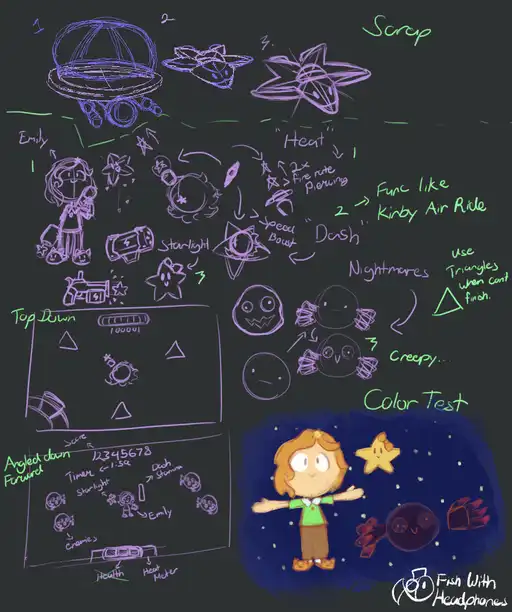 1
2
3.
Scrap
Emily
1
"Heat"
1
2x
Fire rate
Piercing
Func like
2 → Kirby Air Ride
Speed
Boost
"Dash"
Starlight
3
Nightmares
use
Triangles
when cant
finish.
Top Down
100001
3
Creepy..
Color Test
Score
12345678
Angled down
Forward
Timer
1:59
Dash
Stamina
Starlight
Emily
Enemies
Health
Heat
Meter
Fish With
Headphones